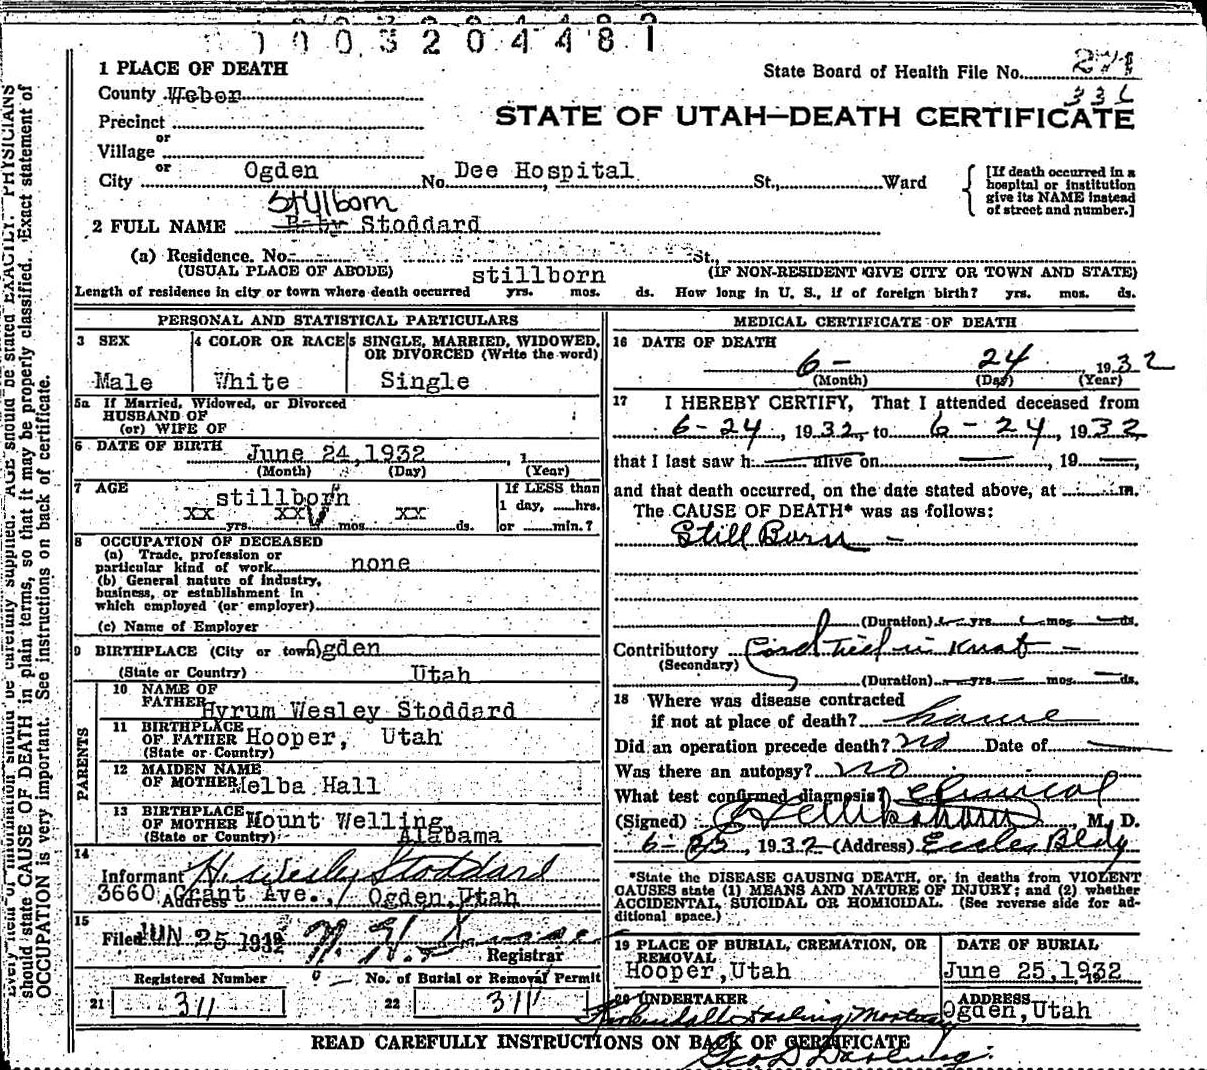 1003204481
1 PLACE OF DEATH
State Board of Health File No. 271
County Weber
336
STATE OF UTAH—DEATH CERTIFICATE
Precinct
or
Village
or
City Ogden No. Dee Hospital St., Ward
[If death occurred in a hospital or institution give its NAME instead of street and number.]
Stillborn
2 FULL NAME Baby Stoddard
(a) Residence. No. St.,
(USUAL PLACE OF ABODE) stillborn (IF NON-RESIDENT GIVE CITY OR TOWN AND STATE)
Length of residence in city or town where death occurred yrs. mos. ds. How long in U. S., if of foreign birth? yrs. mos. ds.
PERSONAL AND STATISTICAL PARTICULARS
3 SEX
Male
4 COLOR OR RACE
White
5 SINGLE, MARRIED, WIDOWED,
OR DIVORCED (Write the word)
Single
5a If Married, Widowed, or Divorced
HUSBAND OF
(or) WIFE OF
6 DATE OF BIRTH June 24,1932, 1
(Month) (Day) (Year)
7 AGE stillborn
xx yrs. xx mos. xx ds.
If LESS than
1 day, hrs.
or min.?
8 OCCUPATION OF DECEASED
(a) Trade, profession or
particular kind of work none
(b) General nature of industry,
business, or establishment in
which employed (or employer)
(c) Name of Employer
9 BIRTHPLACE (City or town) Ogden
(State or Country) Utah
PARENTS
10 NAME OF
FATHER Hyrum Wesley Stoddard
11 BIRTHPLACE
OF FATHER Hooper, Utah
(State or Country)
12 MAIDEN NAME
OF MOTHER Melba Hall
13 BIRTHPLACE
OF MOTHER Mount Welling
(State or Country) Alabama
14
Informant H. Wesley Stoddard
Address 3660 Grant Ave., Ogden,Utah
15
Filed JUN 25 1932
Registrar
Registered Number
21 311
No. of Burial or Removal Permit
22 311
MEDICAL CERTIFICATE OF DEATH
16 DATE OF DEATH
6- 24 1932
(Month) (Day) (Year)
17 I HEREBY CERTIFY, That I attended deceased from
6-24, 1932, to 6-24, 1932
that I last saw h alive on , 19 ,
and that death occurred, on the date stated above, at m.
The CAUSE OF DEATH* was as follows:
Still Born -
(Duration) yrs. mos. ds.
Contributory Cord Tied in Knot -
(Secondary)
(Duration) yrs. mos. ds.
18 Where was disease contracted
if not at place of death? home
Did an operation precede death? no Date of
Was there an autopsy? no
What test confirmed diagnosis? Clinical
(Signed) , M. D.
6-25, 1932 (Address) Eccles Bldg
*State the DISEASE CAUSING DEATH, or, in deaths from VIOLENT
CAUSES state (1) MEANS AND NATURE OF INJURY; and (2) whether
ACCIDENTAL, SUICIDAL OR HOMICIDAL. (See reverse side for ad-
ditional space.)
19 PLACE OF BURIAL, CREMATION, OR
REMOVAL
Hooper,Utah
DATE OF BURIAL
June 25,1932
20 UNDERTAKER
Kirkendall Darling Mortuary
Geo. D Darling
ADDRESS
Ogden,Utah
READ CAREFULLY INSTRUCTIONS ON BACK OF CERTIFICATE
Every item of information should be carefully supplied. AGE should be stated EXACTLY. PHYSICIANS
should state CAUSE OF DEATH in plain terms, so that it may be properly classified. Exact statement of
OCCUPATION is very important. See instructions on back of certificate.